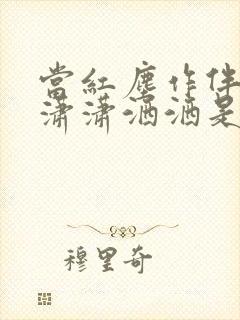 當紅塵作伴
瀟瀟洒洒是
穆里奇